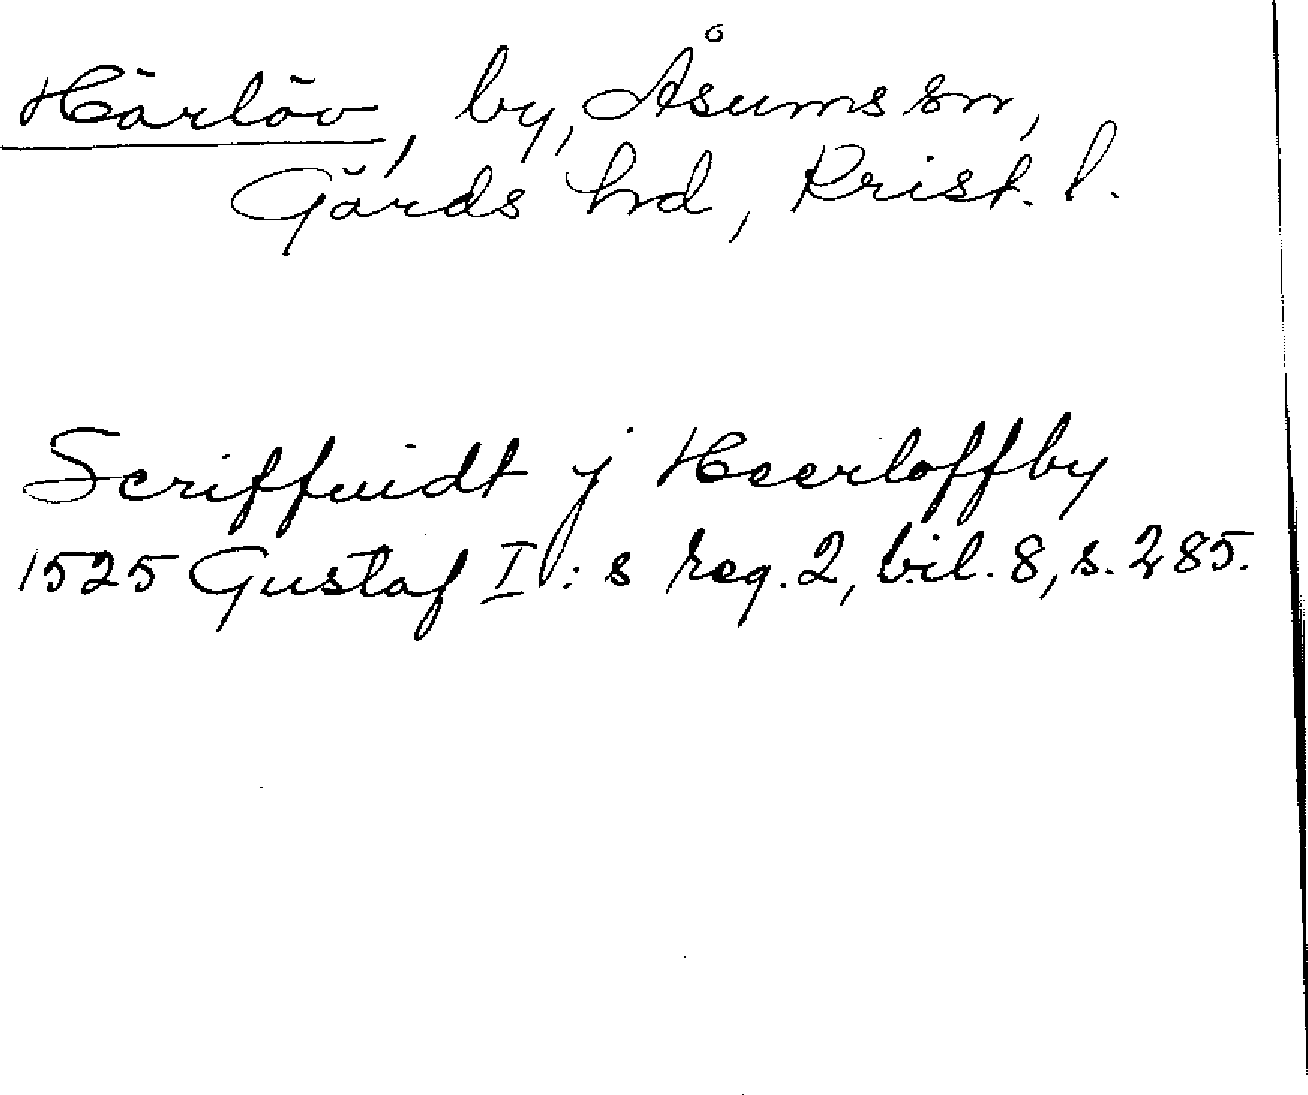 Härlöv, by, Åsums sn,
Gärds hd, Krist. l.
Scriffuidt j Heerloffby
1525 Gustaf I:s reg. 2, bil. 8, s. 285.